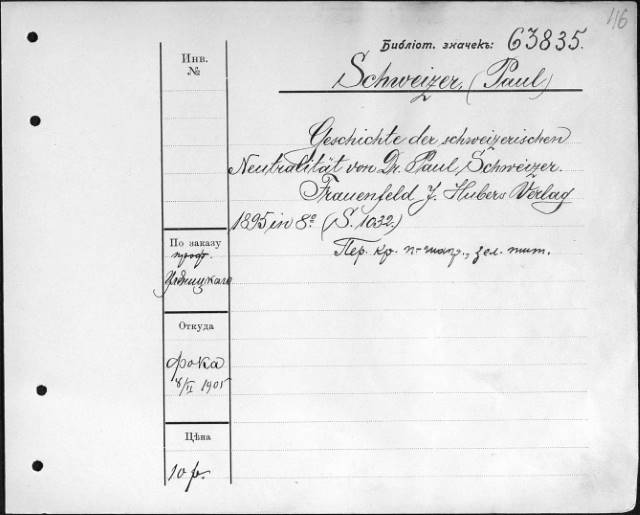 46
Библіот. значекъ: 63835.
Schweizer, (Paul)
Geschichte der schweizerischen
Neutralität von Dr. Paul Schweizer.
Frauenfeld J. Hubers Verlag
1895 in 8º (S. 1032.)
Пер. кр. п-шагр., зел. тит.
Инв.
№
По заказу
проф.
Откуда
Фока
8/II 1905
Цѣна
10 р.